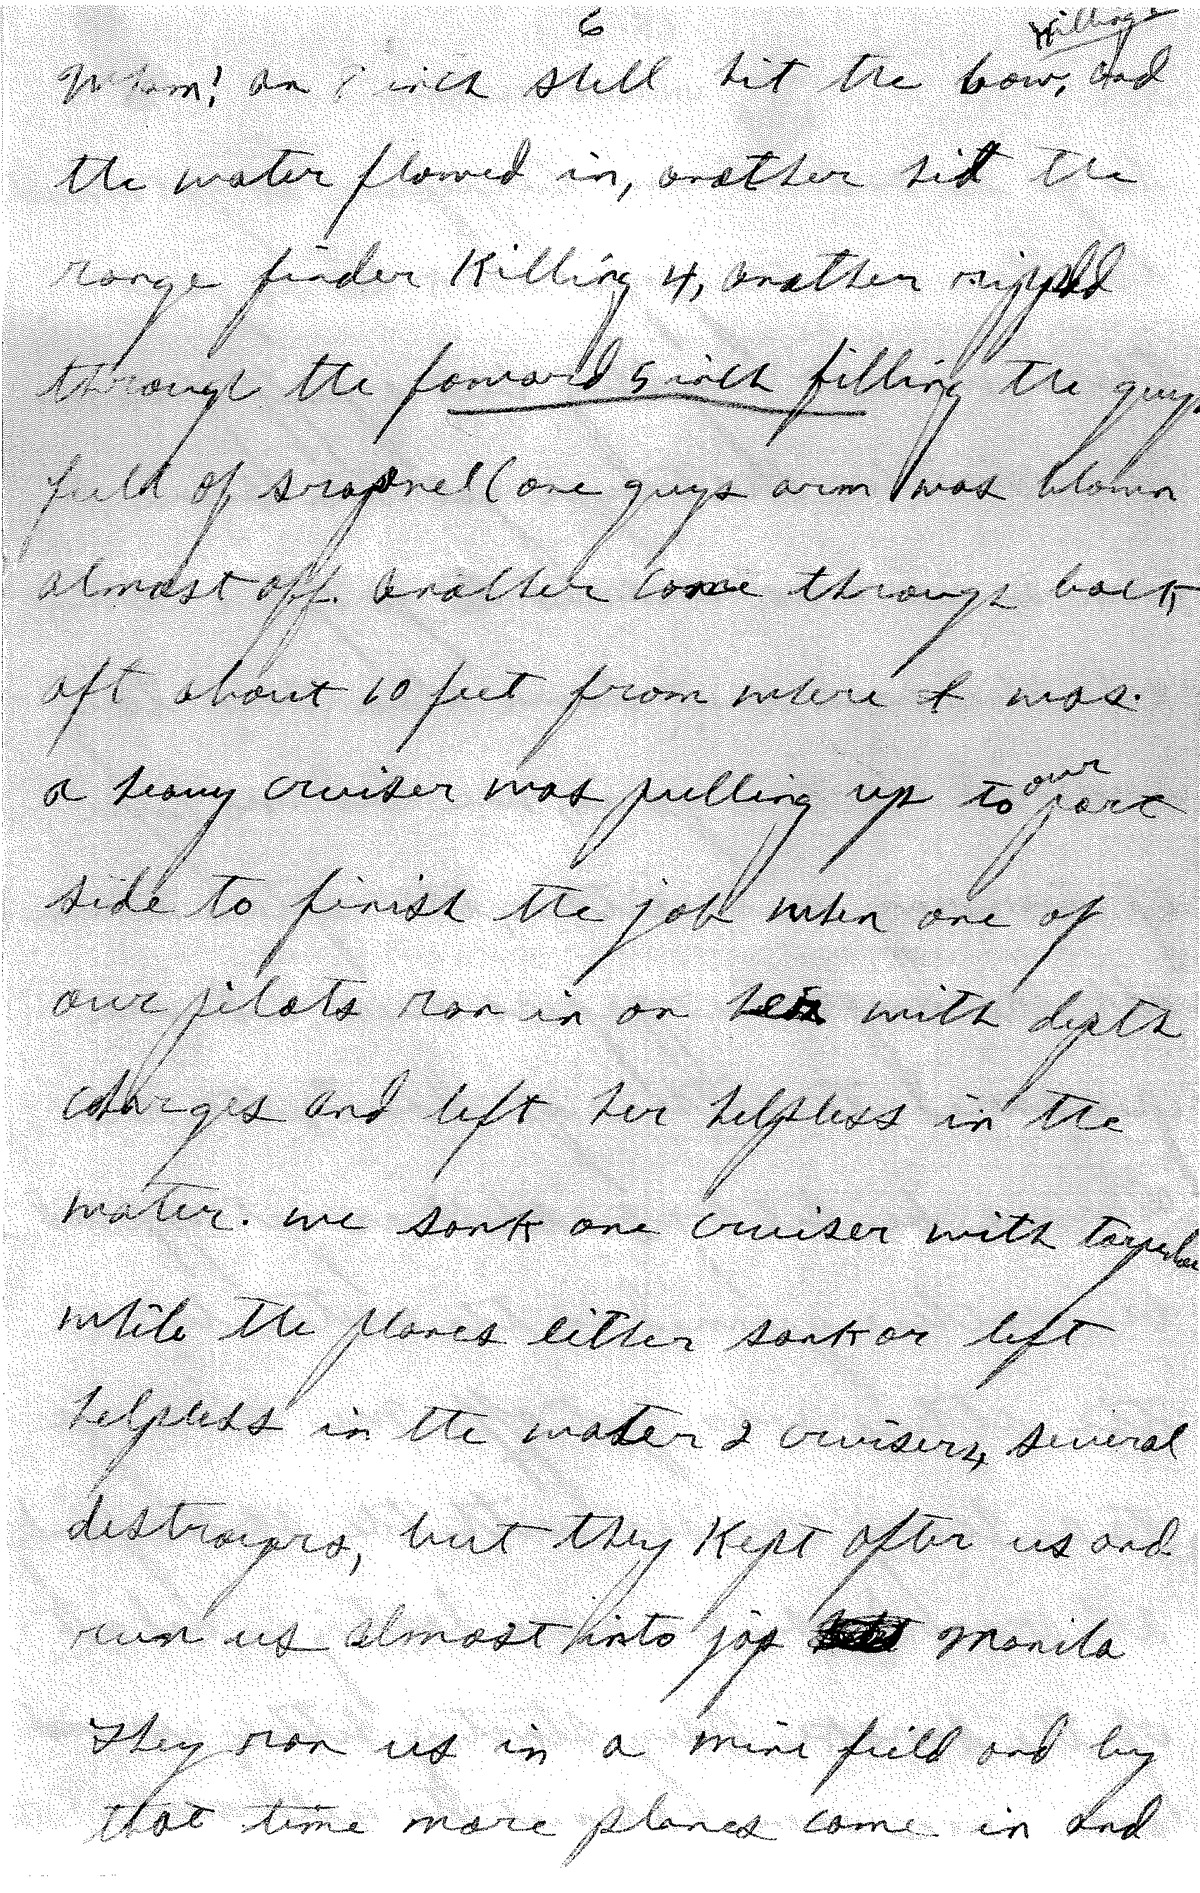 6
Killing
Wham! an 8 inch shell hit the bow, and
the water flowed in, another hit the
range finder Killing 4, another rippled
through the forward 5 inch filling the guys
full of srapnel (one guys arm was blown
almost off. another come through back
aft about 10 feet from where I was.
a heavy cruiser was pulling up to our port
side to finish the job when one of
our pilots ran in on her with depth
charges and left her helpless in the
water. we sank one cruiser with
while the planes either sank or left
helpless in the water 2 cruisers, several
destroyers, but they Kept after us and
run us almost into jap manila
They ran us in a mine field and by
that time more planes come in and